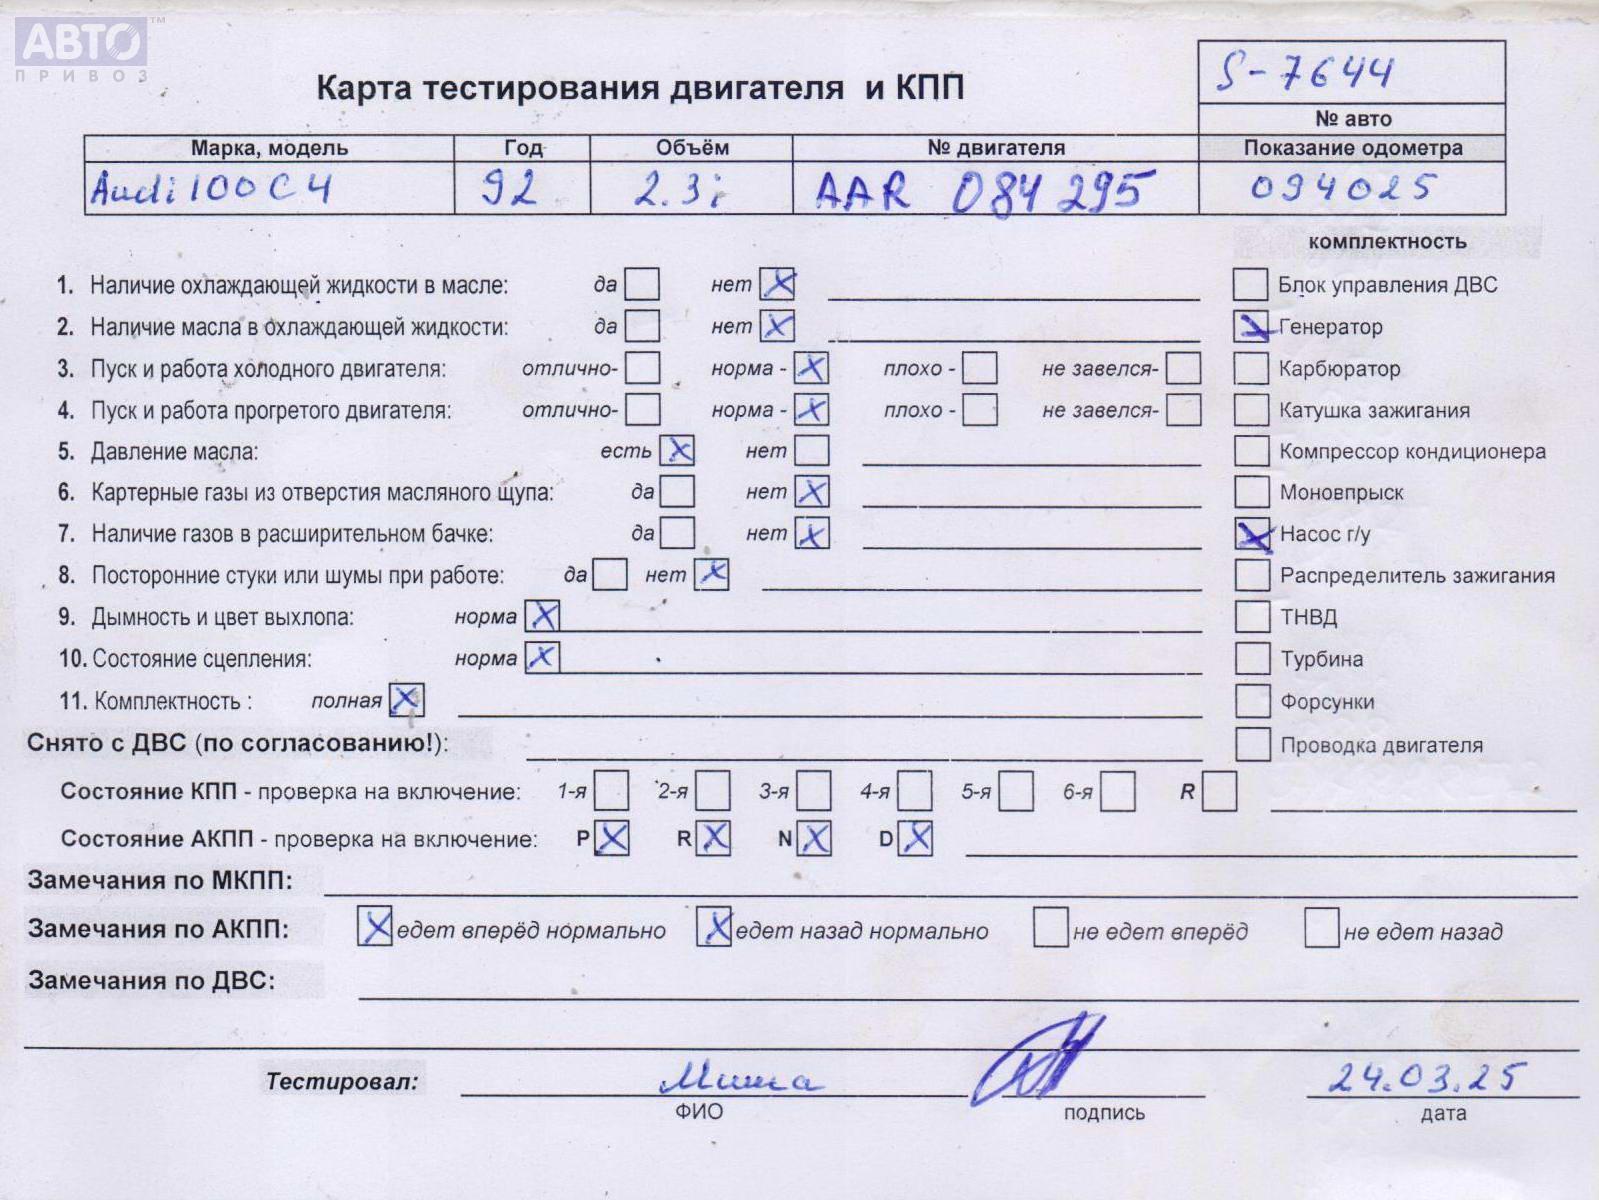 АВТО™
ПРИВОЗ
S-7644
Карта тестирования двигателя и КПП
№ авто
Марка, модель Год Объём № двигателя Показание одометра
Audi 100 C4 92 2.3i AAR 084295 094025
комплектность
1. Наличие охлаждающей жидкости в масле: да нет Блок управления ДВС
2. Наличие масла в охлаждающей жидкости: да нет Генератор
3. Пуск и работа холодного двигателя: отлично- норма - плохо - не завелся- Карбюратор
4. Пуск и работа прогретого двигателя: отлично- норма - плохо - не завелся- Катушка зажигания
5. Давление масла: есть нет Компрессор кондиционера
6. Картерные газы из отверстия масляного щупа: да нет Моновпрыск
7. Наличие газов в расширительном бачке: да нет Насос г/у
8. Посторонние стуки или шумы при работе: да нет Распределитель зажигания
9. Дымность и цвет выхлопа: норма ТНВД
10. Состояние сцепления: норма Турбина
11. Комплектность : полная Форсунки
Снято с ДВС (по согласованию!): Проводка двигателя
Состояние КПП - проверка на включение: 1-я 2-я 3-я 4-я 5-я 6-я R
Состояние АКПП - проверка на включение: P R N D
Замечания по МКПП:
Замечания по АКПП: едет вперёд нормально едет назад нормально не едет вперёд не едет назад
Замечания по ДВС:
Тестировал: Миша 24.03.25
ФИО подпись дата